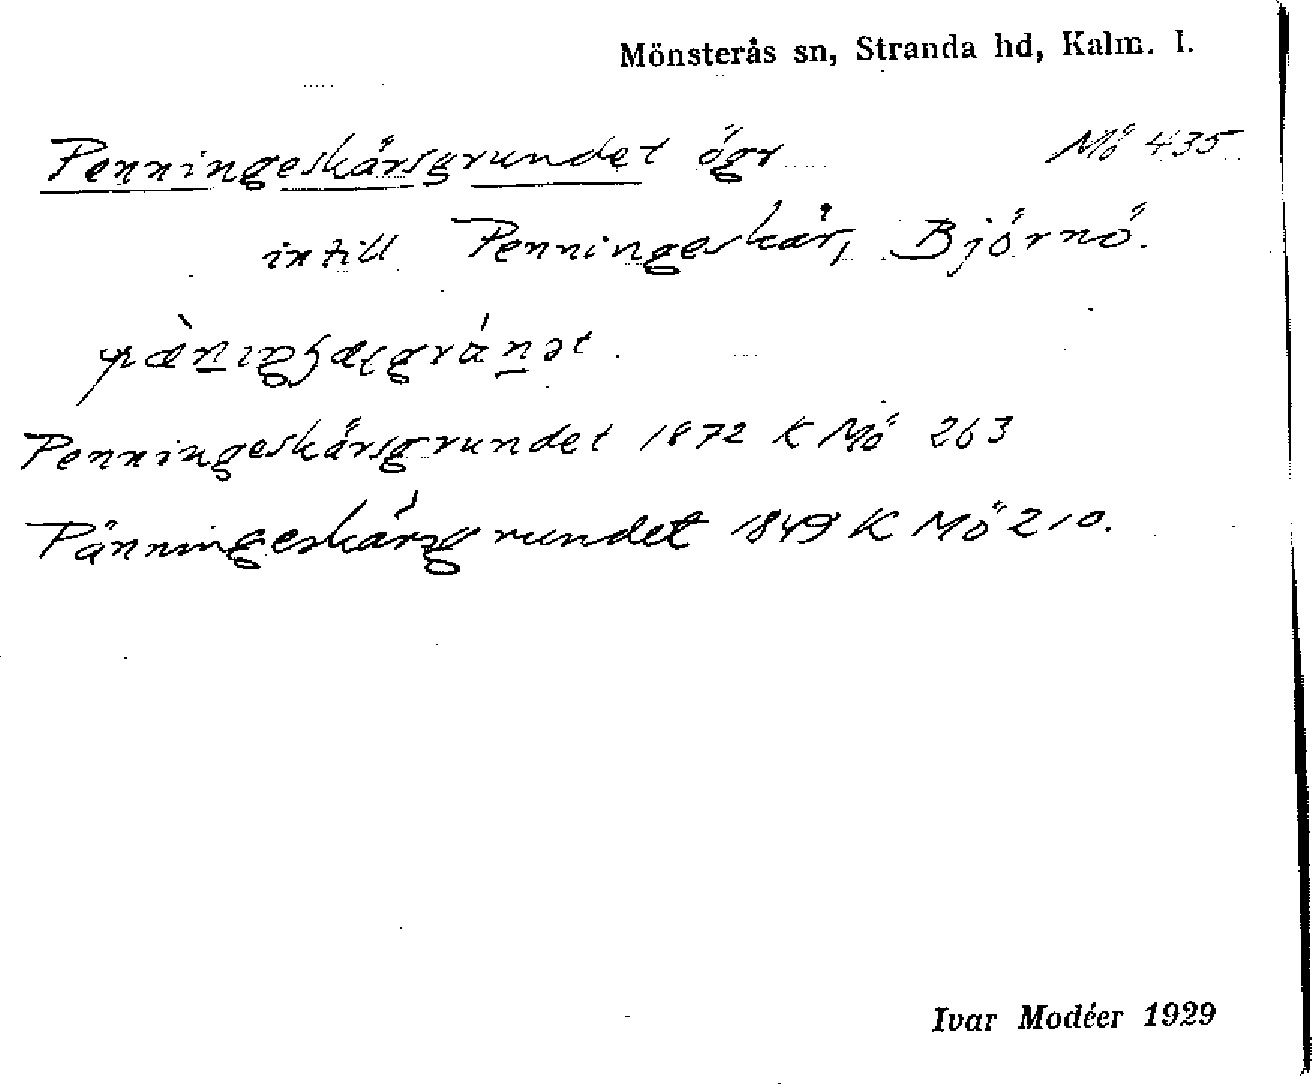 Mönsterås sn, Stranda hd, Kalm. l.
Penningeskärsgrundet ögr Mö 435
intill Penningeskär, Björnö.
Penningeskärsgrundet 1872 K Mö 263
Pänningeskärsgrundet 1849 K Mö 210.
Ivar Modéer 1929